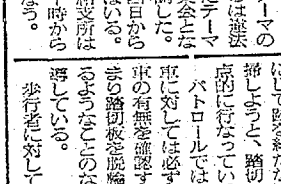 ーマの
は違法
テーマ
会とな
した。
日から
いる。
支所は
時から
う。
して跡を絶た
掃しようと、踏切
点的に行なってい
パトロールでは
車に対しては必ず
車の有無を確認す
まり踏切板を脱輪
るようなことのな
導している。
歩行者に対して